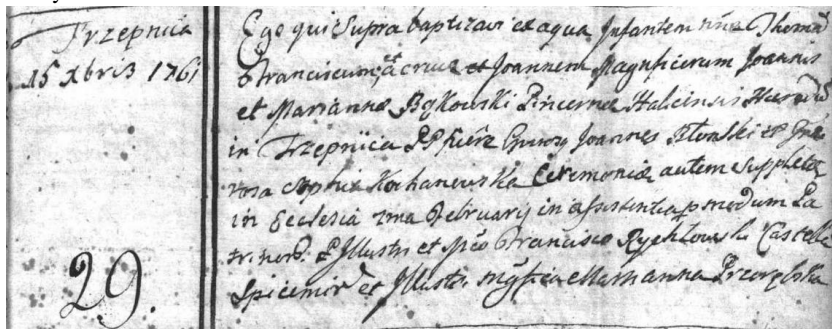 Trzepnica
15 Xbris 1761
29.
Ego qui supra baptizavi ex aqua Infantem nne Thomã
Franciscum, a cruce et Joannem Magnficorum Joannis
et Mariannæ Bąkowski Pincernæ Halicensis Hæredũ
in Trzepnica PP fuere Joannes Błonski et Gne
rosa Sophia Kochanowska Ceremoniæ autem suppletæ
in Ecclesia 2ma Februarij in assistentia p modum Pa
trinor. P Illustri et Mco Francisco Rychłowski Castell
Spicimir et Illustr. Mgfica Marianna Przerębska